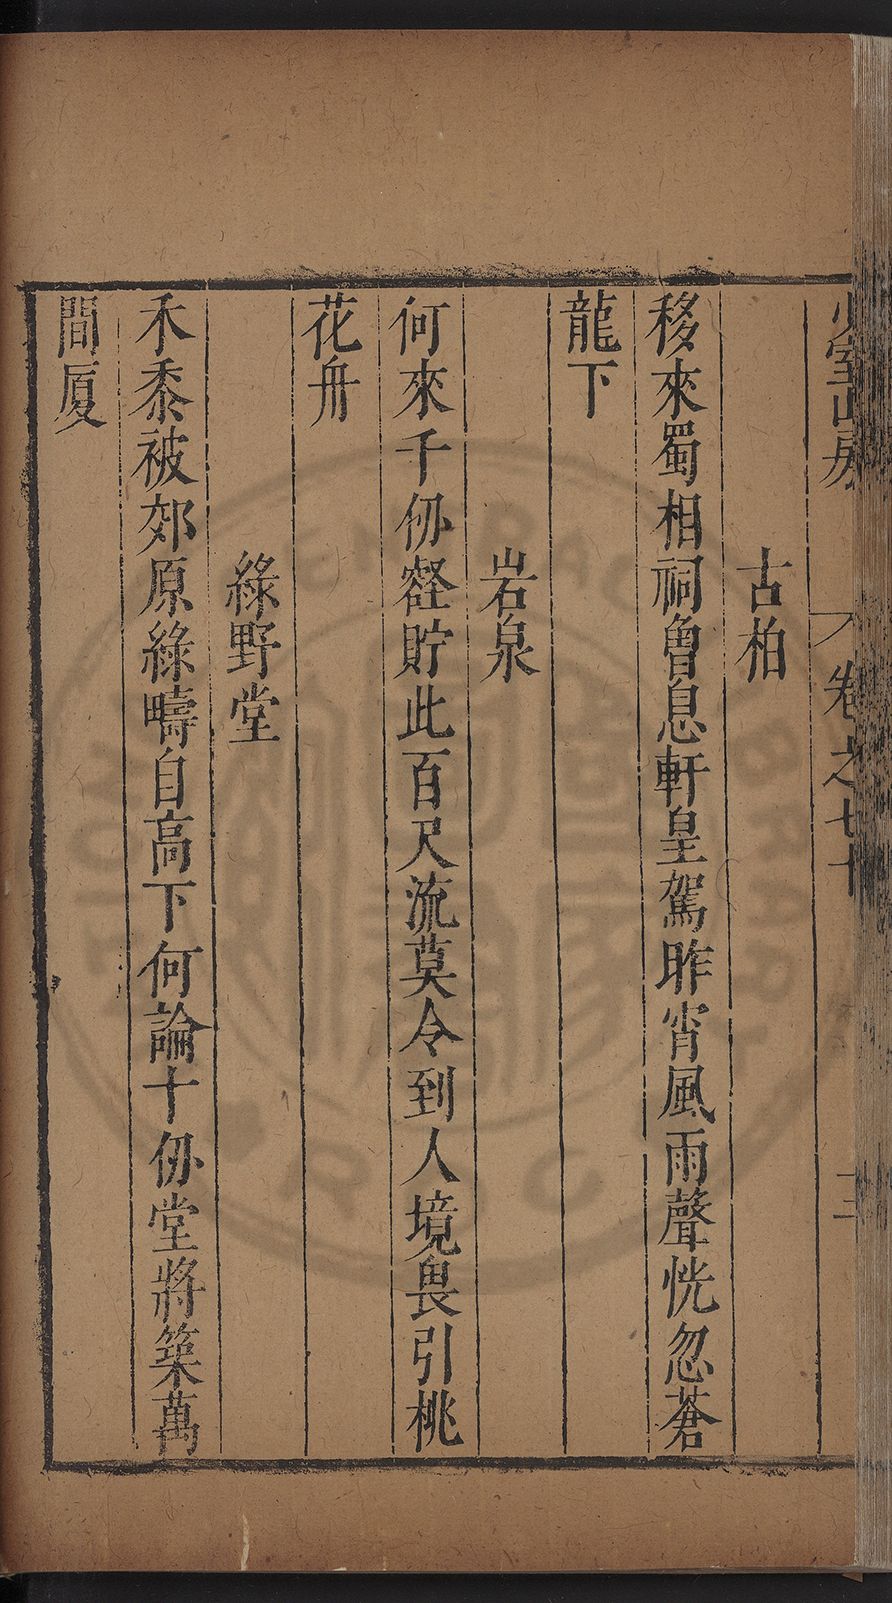 少室山房 卷之七十 三
古柏
移來蜀相祠曾息軒皇駕昨宵風雨聲恍忽蒼
龍下
岩泉
何來千仞壑貯此百尺流莫令到人境畏引桃
花舟
綠野堂
禾黍被郊原綠疇自高下何論十仞堂將築萬
間厦